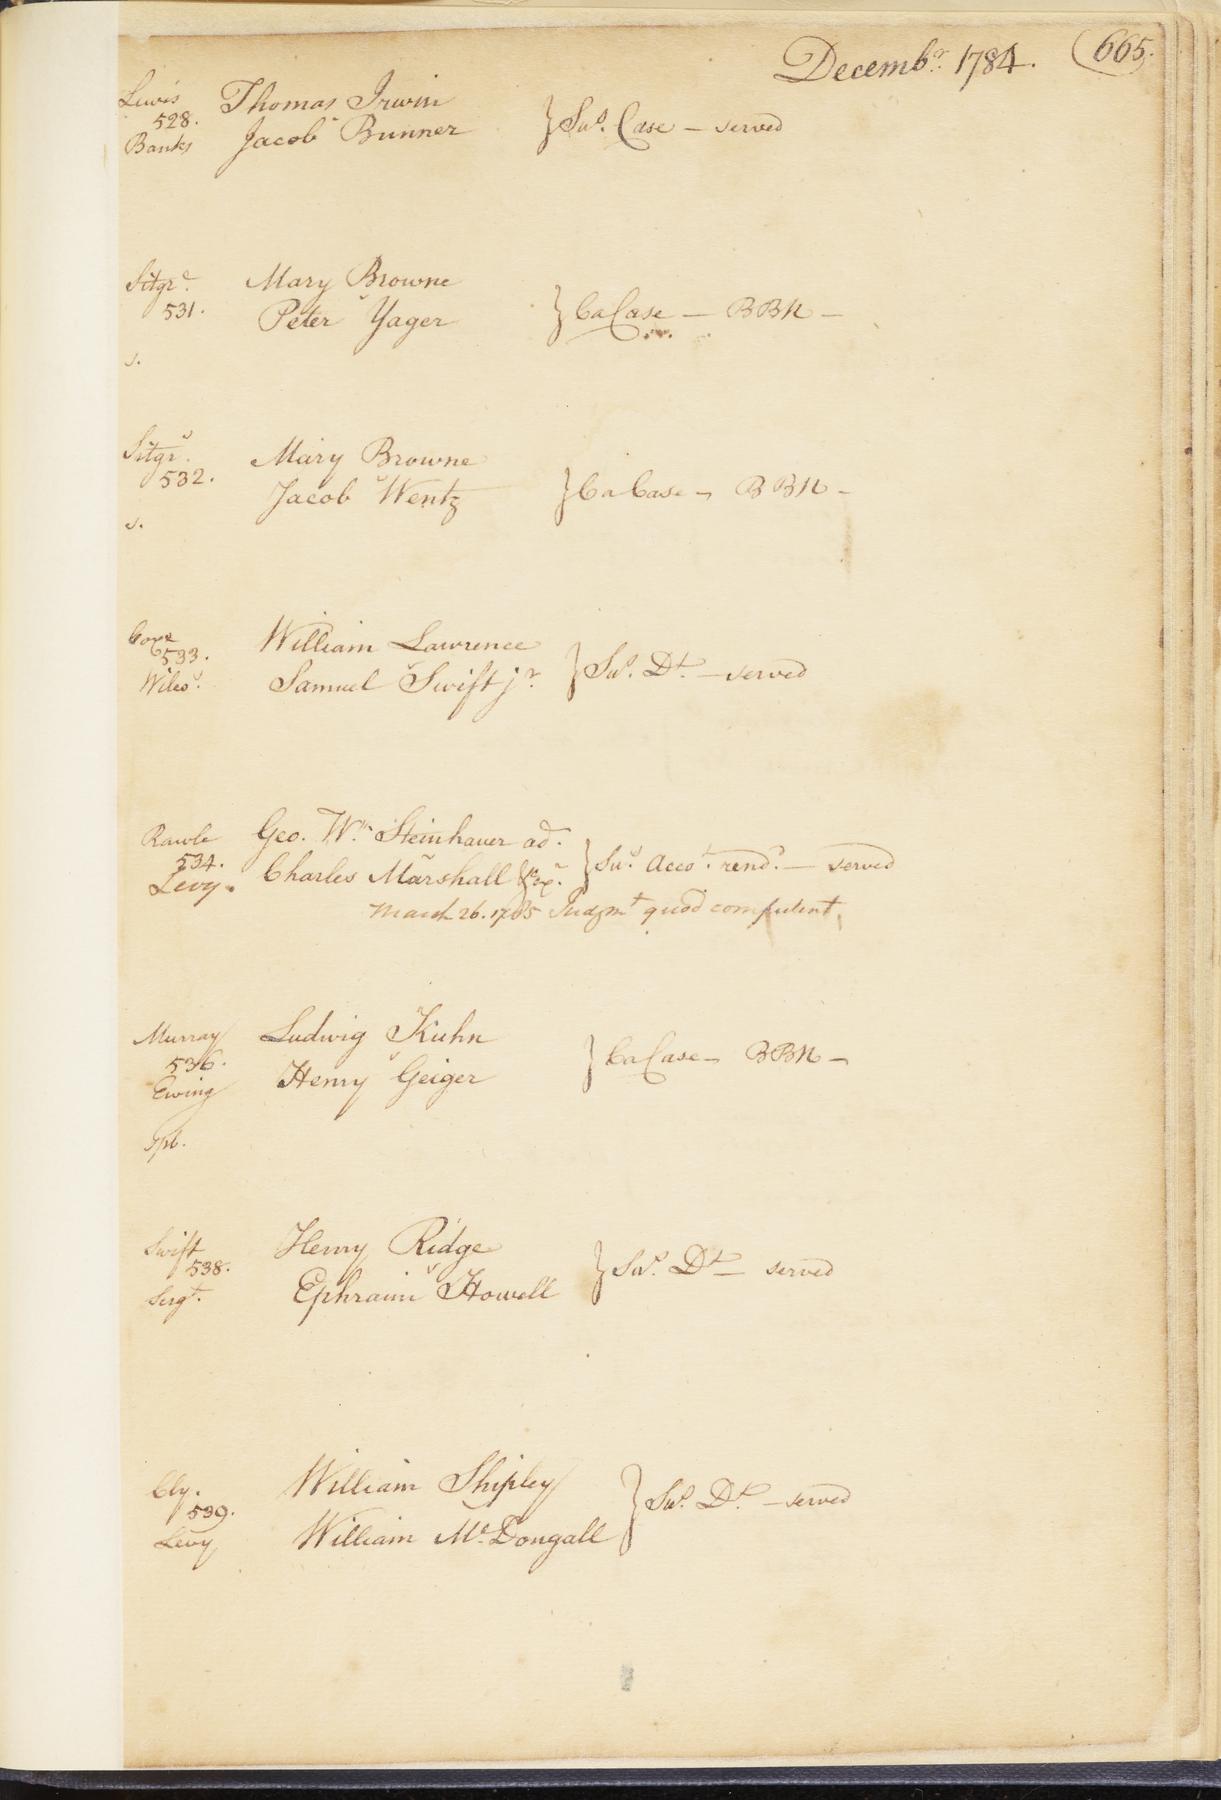 Decembr. 1784. 665.
Lewis Thomas Irwin
528. v } Sus. Case — served
Banks Jacob Bunner
Sitgrs. Mary Browne
531. v } Ca Case — BBN —
Peter Yager
s.
Sitgrs. Mary Browne
532. v } Ca Case — BBN —
Jacob Wentz
s.
Coxe William Lawrence
533. v } Sus. Dt. — served
Wilcs. Samuel Swift jr.
Rawle Geo. Wm. Steinhauer ad.
534. v } Sus. Acco. rend. — served
Levy. Charles Marshall
March 26. 1785 Judgmt quod computent,
Murray Ludwig Kuhn
536. v } Ca Case — BBN —
Ewing Henry Geiger
spl.
Swift Henry Ridge
538. v } Sus. Dt — served
Sergt. Ephraim Howell
Cly. William Shipley
539. } Sus. Dt. — served
Levy William McDougall